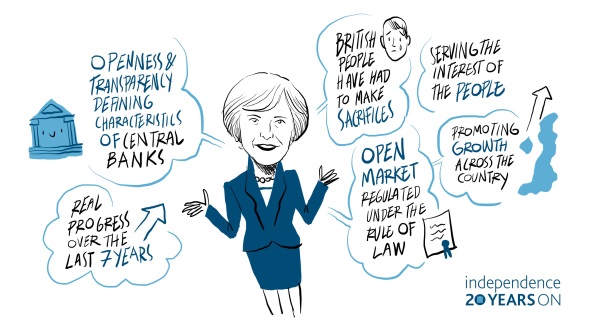 OPENNESS &
TRANSPARENCY
DEFINING
CHARACTERISTICS
OF CENTRAL
BANKS
REAL
PROGRESS
OVER THE
LAST 7 YEARS
BRITISH
PEOPLE
HAVE HAD
TO MAKE
SACRIFICES
SERVING THE
INTEREST OF
THE PEOPLE
PROMOTING
GROWTH
ACROSS THE
COUNTRY
OPEN
MARKET
REGULATED
UNDER THE
RULE OF
LAW
independence
20 YEARS ON